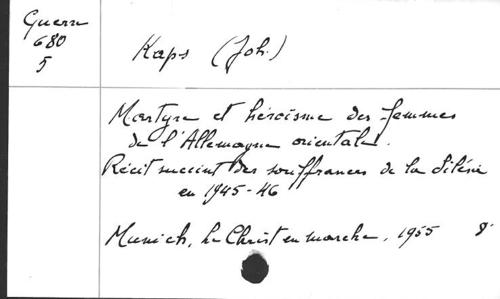 Guerre
680
5
Kaps (Joh.)
Martyre et héroïsme des femmes
de l'Allemagne orientale.
Récit succint des souffrances de la Silésie
en 1945-46
Munich, le Christ en marche, 1955 8°